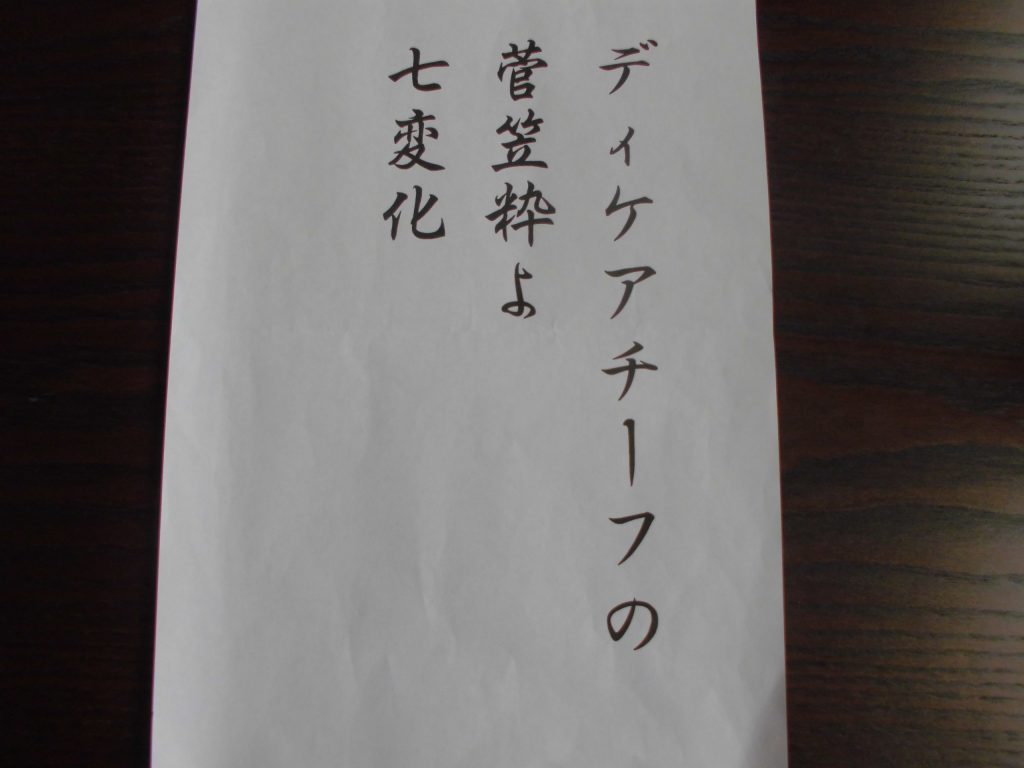 ディケアチーフの
菅笠粋よ
七変化